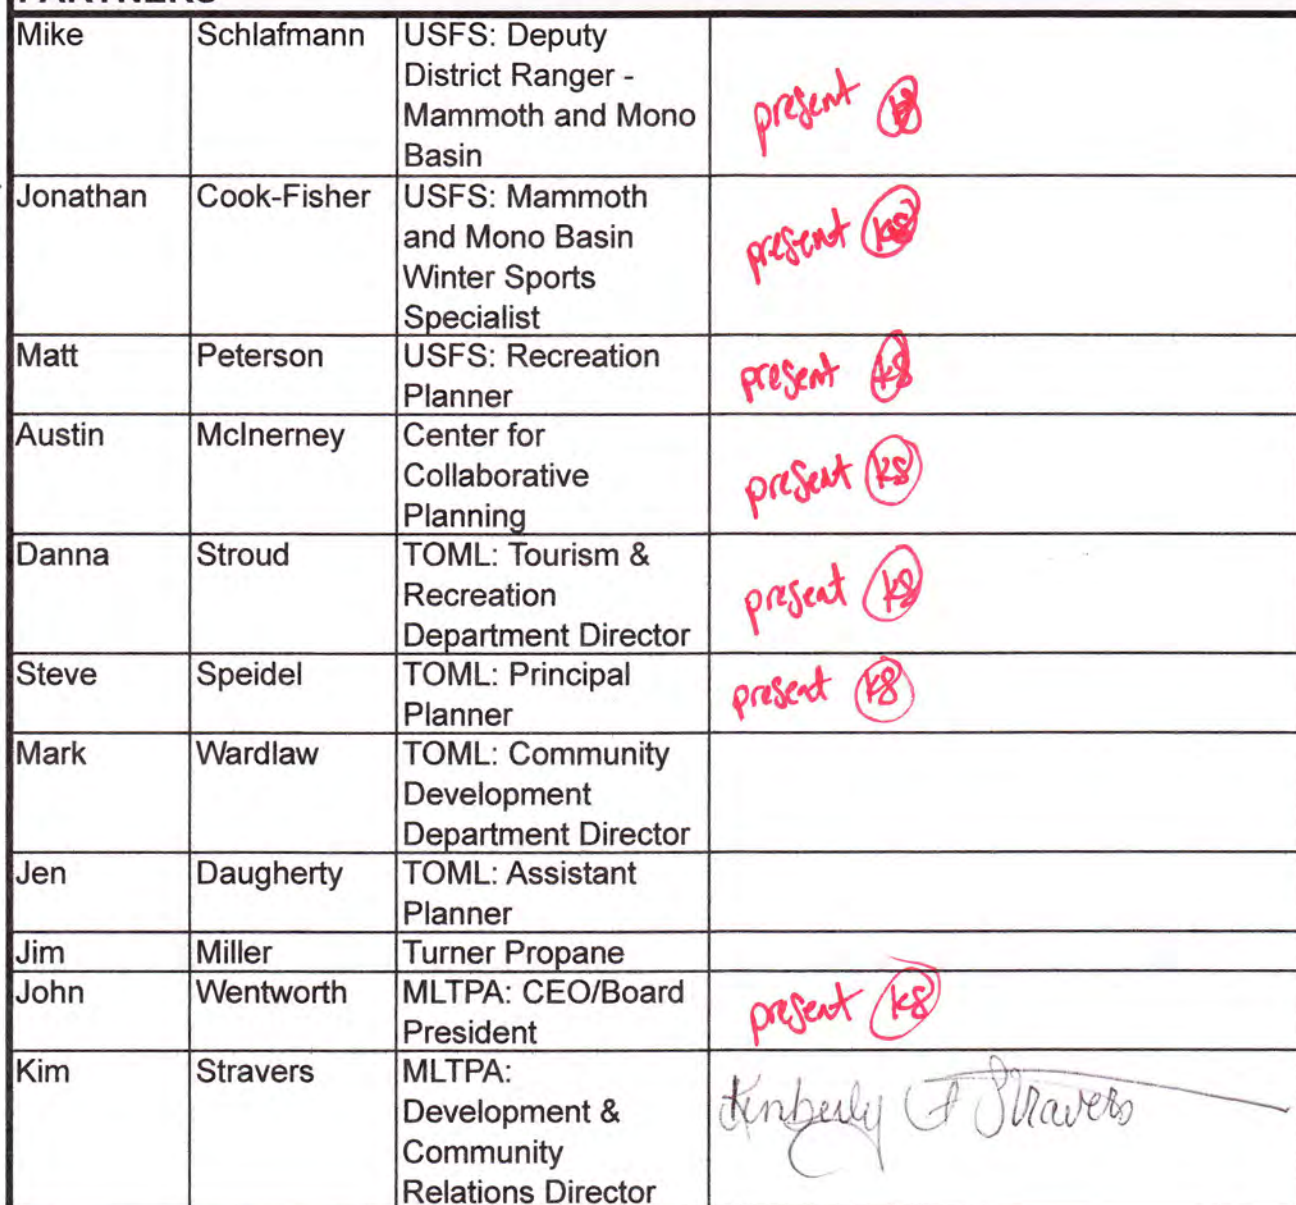 PARTNERS
Mike Schlafmann USFS: Deputy
District Ranger -
Mammoth and Mono
Basin
present
Jonathan Cook-Fisher USFS: Mammoth
and Mono Basin
Winter Sports
Specialist
present KS
Matt Peterson USFS: Recreation
Planner
present KS
Austin McInerney Center for
Collaborative
Planning
present KS
Danna Stroud TOML: Tourism &
Recreation
Department Director
present KS
Steve Speidel TOML: Principal
Planner
present KS
Mark Wardlaw TOML: Community
Development
Department Director
Jen Daugherty TOML: Assistant
Planner
Jim Miller Turner Propane
John Wentworth MLTPA: CEO/Board
President
present KS
Kim Stravers MLTPA:
Development &
Community
Relations Director
Kimberly A Stravers